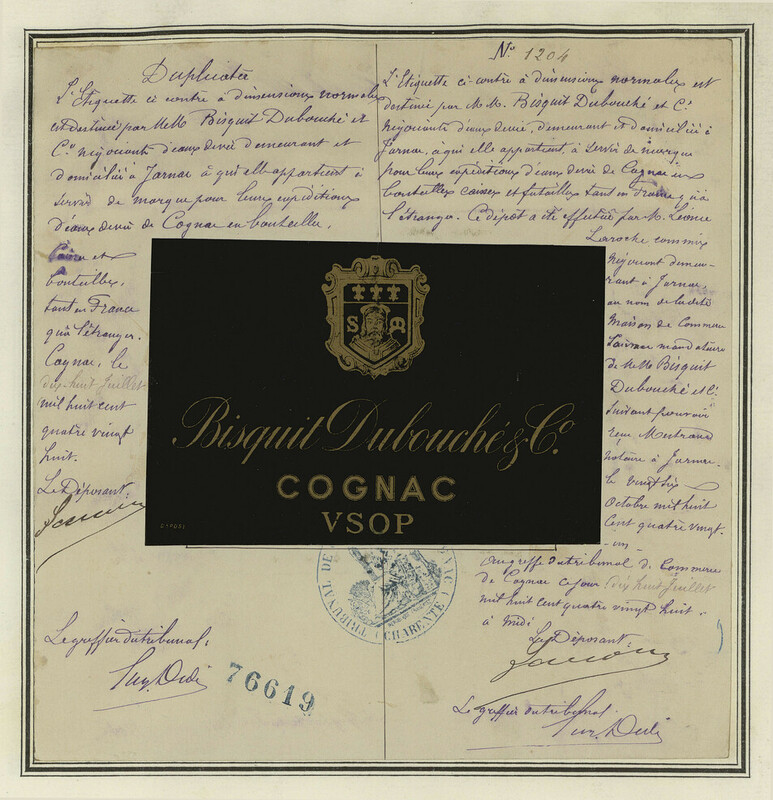 Duplicata
L'Etiquette ci contre à dimensions normales
est destinée par M.M. Bisquit Dubouché et
Co négociants d'eaux de vie demeurant et
domiciliés à Jarnac à qui elle appartient à
servir de marque pour leurs expéditions
d'eaux de vie de Cognac en bouteilles.
caisses et
bouteilles,
tant en France
qu'à l'étranger.
Cognac, le
dix huit Juillet
mil huit cent
quatre vingt
huit.
Le Déposant
Le greffier du tribunal:
76619
No 1204
L'Etiquette ci-contre à dimensions normales est
destinée par M.M. Bisquit Dubouché et Co
négociants d'eaux de vie, demeurant et domiciliés à
Jarnac, à qui elle appartient, à servir de marque
pour leurs expéditions d'eaux de vie de Cognac en
bouteilles caisses et futailles tant en France qu'à
l'étranger. Ce dépôt a été effectué par M. Léonce
Laroche commis
négociant demeu-
rant à Jarnac,
au nom de la dite
Maison de Commerce
comme mandataire
de M.M. Bisquit
Dubouché et Co
suivant pouvoir
reçu Mutraud
notaire à Jarnac
le vingt six
Octobre mil huit
cent quatre vingt-
un
Au greffe du tribunal de Commerce
de Cognac ce jour dix huit Juillet
mil huit cent quatre vingt huit -
à midi
Le Déposant:
Le greffier du tribunal
S
Bisquit Dubouché & Co.
COGNAC
VSOP
TRIBUNAL DE
CHARENTE